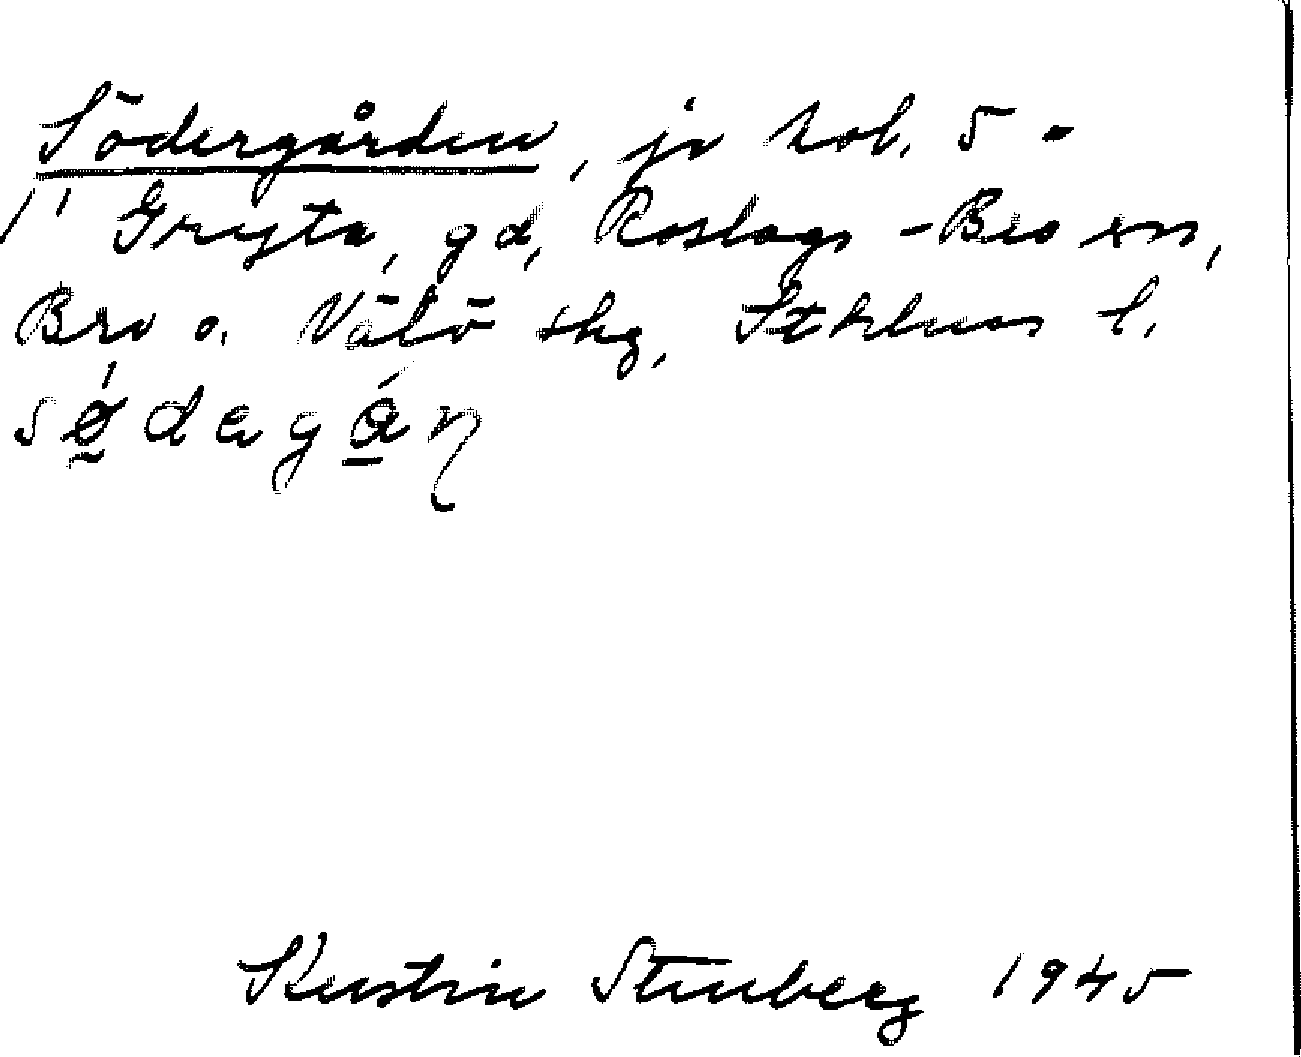 Södergården, jo kob. 5 -
i Gryta, gd, Roslags-Bro sn,
Bro o. Vätö skg, Sthlms l.
sødagan
Kerstin Stenberg 1945